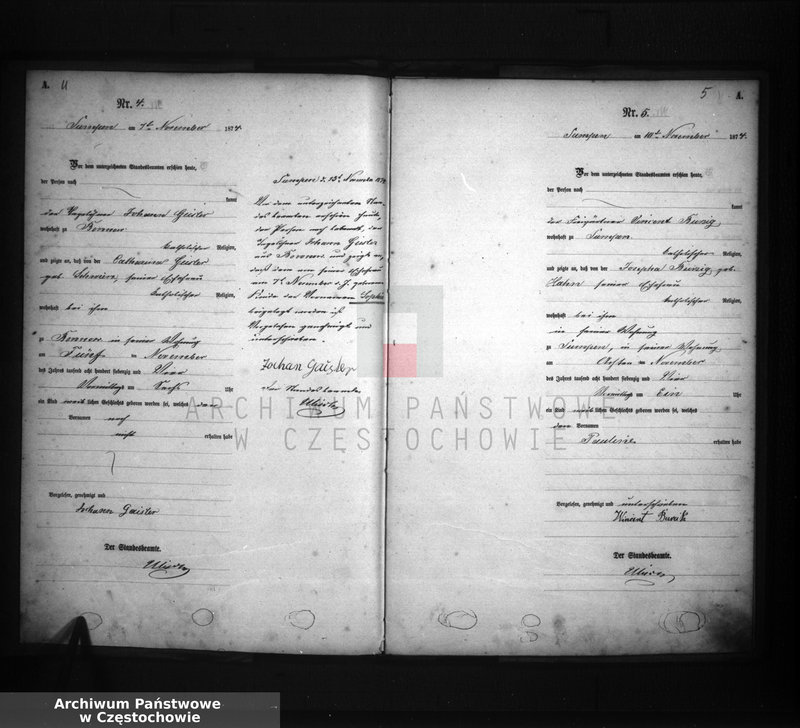 A. 4
Nr. 4.
Sumpen am 7ten November 1874
Vor dem unterzeichneten Standesbeamten erschien heute,
der Person nach
kannt
der Tagelöhner Johann Geisler
wohnhaft zu
katholischer Religion,
und zeigte an, daß von der Catharina Geisler
geb. seiner Ehefrau
katholischer Religion,
wohnhaft bei ihm
zu in seiner Wohnung
am Fünf ten November
des Jahres tausend acht hundert siebenzig und Vier
Vormittags um Sechs Uhr
ein Kind weib lichen Geschlechts geboren worden sei, welches
Vornamen noch
nicht erhalten habe
Vorgelesen, genehmigt und
Johann Gaisler
Der Standesbeamte.
Sumpen d. 13t November 1874
Vor dem unterzeichneten Stan-
desbeamten erschien heute,
der Person nach bekannt, der
Tagelöhner Johann Geisler
aus und zeigte an,
daß dem von seiner Ehefrau
am 5t November d. J. geborenen
Kinde der Vorname Sophie
beigelegt worden ist
Vorgelesen genehmigt und
unterschrieben.
Johan Gaisler
Der Standesbeamte
5 A.
Nr. 5.
Sumpen am 10ten November 1874.
Vor dem unterzeichneten Standesbeamten erschien heute,
der Person nach
kannt
der Freigärtner Vincent
wohnhaft zu Sumpen
katholischer Religion,
und zeigte an, daß von der Josepha geb.
Hahn seiner Ehefrau
katholischer Religion,
wohnhaft bei ihm
in seiner Wohnung
zu Sumpen, in seiner Wohnung
am Achten ten November
des Jahres tausend acht hundert siebenzig und Vier
Vormittags um Ein Uhr
ein Kind weib lichen Geschlechts geboren worden sei, welches
den Vornamen
Pauline erhalten habe
Vorgelesen, genehmigt und unterschrieben
Wincent
Der Standesbeamte.
ARCHIWUM PAŃSTWOWE
W CZĘSTOCHOWIE
Archiwum Państwowe
w Częstochowie